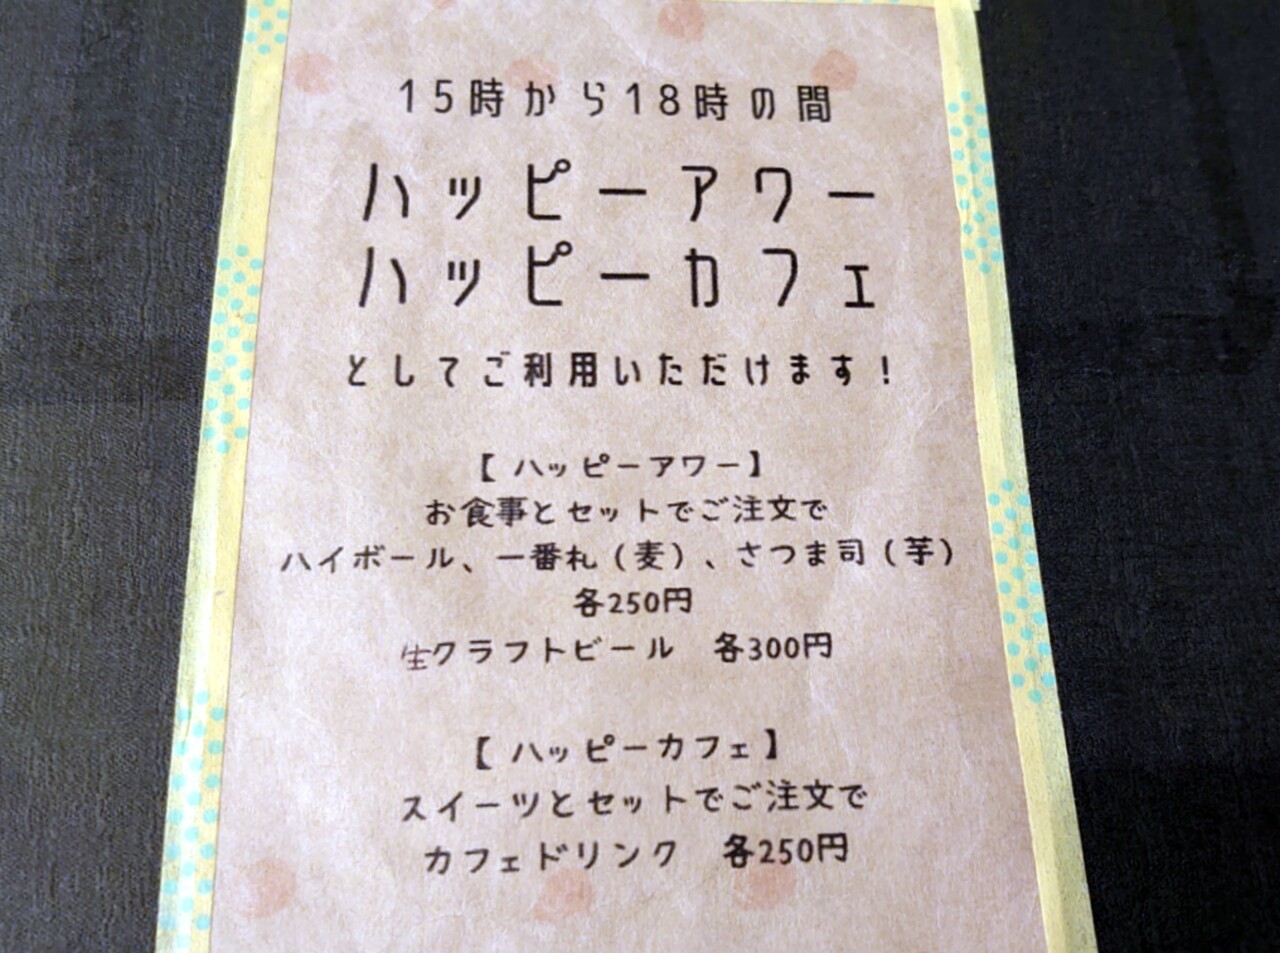 15時から18時の間
ハッピーアワー
ハッピーカフェ
としてご利用いただけます!
【ハッピーアワー】
お食事とセットでご注文で
ハイボール、一番札(麦)、さつま司(芋)
各250円
生クラフトビール 各300円
【ハッピーカフェ】
スイーツとセットでご注文で
カフェドリンク 各250円